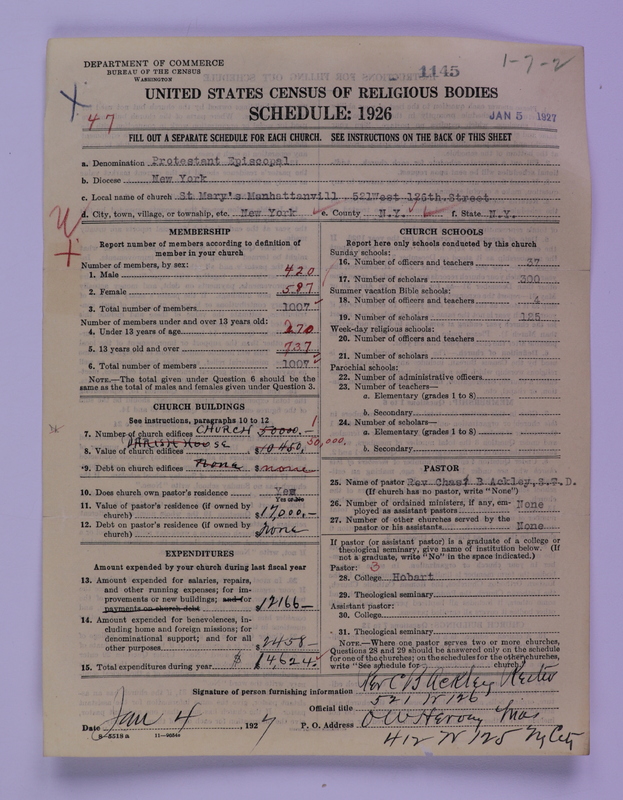 DEPARTMENT OF COMMERCE
BUREAU OF THE CENSUS
WASHINGTON
1145
1-7-2
X
47
UNITED STATES CENSUS OF RELIGIOUS BODIES
SCHEDULE: 1926
JAN 5 1927
FILL OUT A SEPARATE SCHEDULE FOR EACH CHURCH. SEE INSTRUCTIONS ON THE BACK OF THIS SHEET
a. Denomination Protestant Episcopal
b. Diocese New York
c. Local name of church St Mary's Manhattanvill 521West 126th.Street
d. City, town, village, or township, etc. New York e. County N.Y. f. State N.Y.
MEMBERSHIP
Report number of members according to definition of
member in your church
Number of members, by sex:
1. Male 420
2. Female 587
3. Total number of members 1007
Number of members under and over 13 years old:
4. Under 13 years of age 270
5. 13 years old and over 737
6. Total number of members 1007
NOTE.—The total given under Question 6 should be the
same as the total of males and females given under Question 3.
CHURCH BUILDINGS
See instructions, paragraphs 10 to 12
7. Number of church edifices CHURCH 50000.– 1
PARISH HOUSE
8. Value of church edifices $10450. 50,000.
*9. Debt on church edifices None $ none
10. Does church own pastor's residence Yes
Yes or No
11. Value of pastor's residence (if owned by
church) $17,000.–
12. Debt on pastor's residence (if owned by
church) $ none
EXPENDITURES
Amount expended by your church during last fiscal year
13. Amount expended for salaries, repairs,
and other running expenses; for im-
provements or new buildings; and for
payments on church debt $12166–
14. Amount expended for benevolences, in-
cluding home and foreign missions; for
denominational support; and for all
other purposes $2458–
15. Total expenditures during year $ 14,624
CHURCH SCHOOLS
Report here only schools conducted by this church
Sunday schools:
16. Number of officers and teachers 37
17. Number of scholars 300
Summer vacation Bible schools:
18. Number of officers and teachers 4
19. Number of scholars 125
Week-day religious schools:
20. Number of officers and teachers
21. Number of scholars
Parochial schools:
22. Number of administrative officers
23. Number of teachers—
a. Elementary (grades 1 to 8)
b. Secondary
24. Number of scholars—
a. Elementary (grades 1 to 8)
b. Secondary
PASTOR
25. Name of pastor Rev. Chas. B Ackley, S.T.D.
(If church has no pastor, write "None")
26. Number of ordained ministers, if any, em-
ployed as assistant pastors None
27. Number of other churches served by the
pastor or his assistants None
If pastor (or assistant pastor) is a graduate of a college or
theological seminary, give name of institution below. (If
not a graduate, write "No" in the space indicated.)
Pastor: 3
28. College Hobart
29. Theological seminary
Assistant pastor:
30. College
31. Theological seminary
NOTE.—Where one pastor serves two or more churches,
Questions 28 and 29 should be answered only on the schedule
for one of the churches; on the schedules for the other churches,
write "See schedule for church."
Signature of person furnishing information Rev C B Ackley Rector
521 W 126
Official title
O W Hervey Treas
Date Jan 4 1927
P. O. Address 412 W 125 NyCity
8-5518a 11-9054a